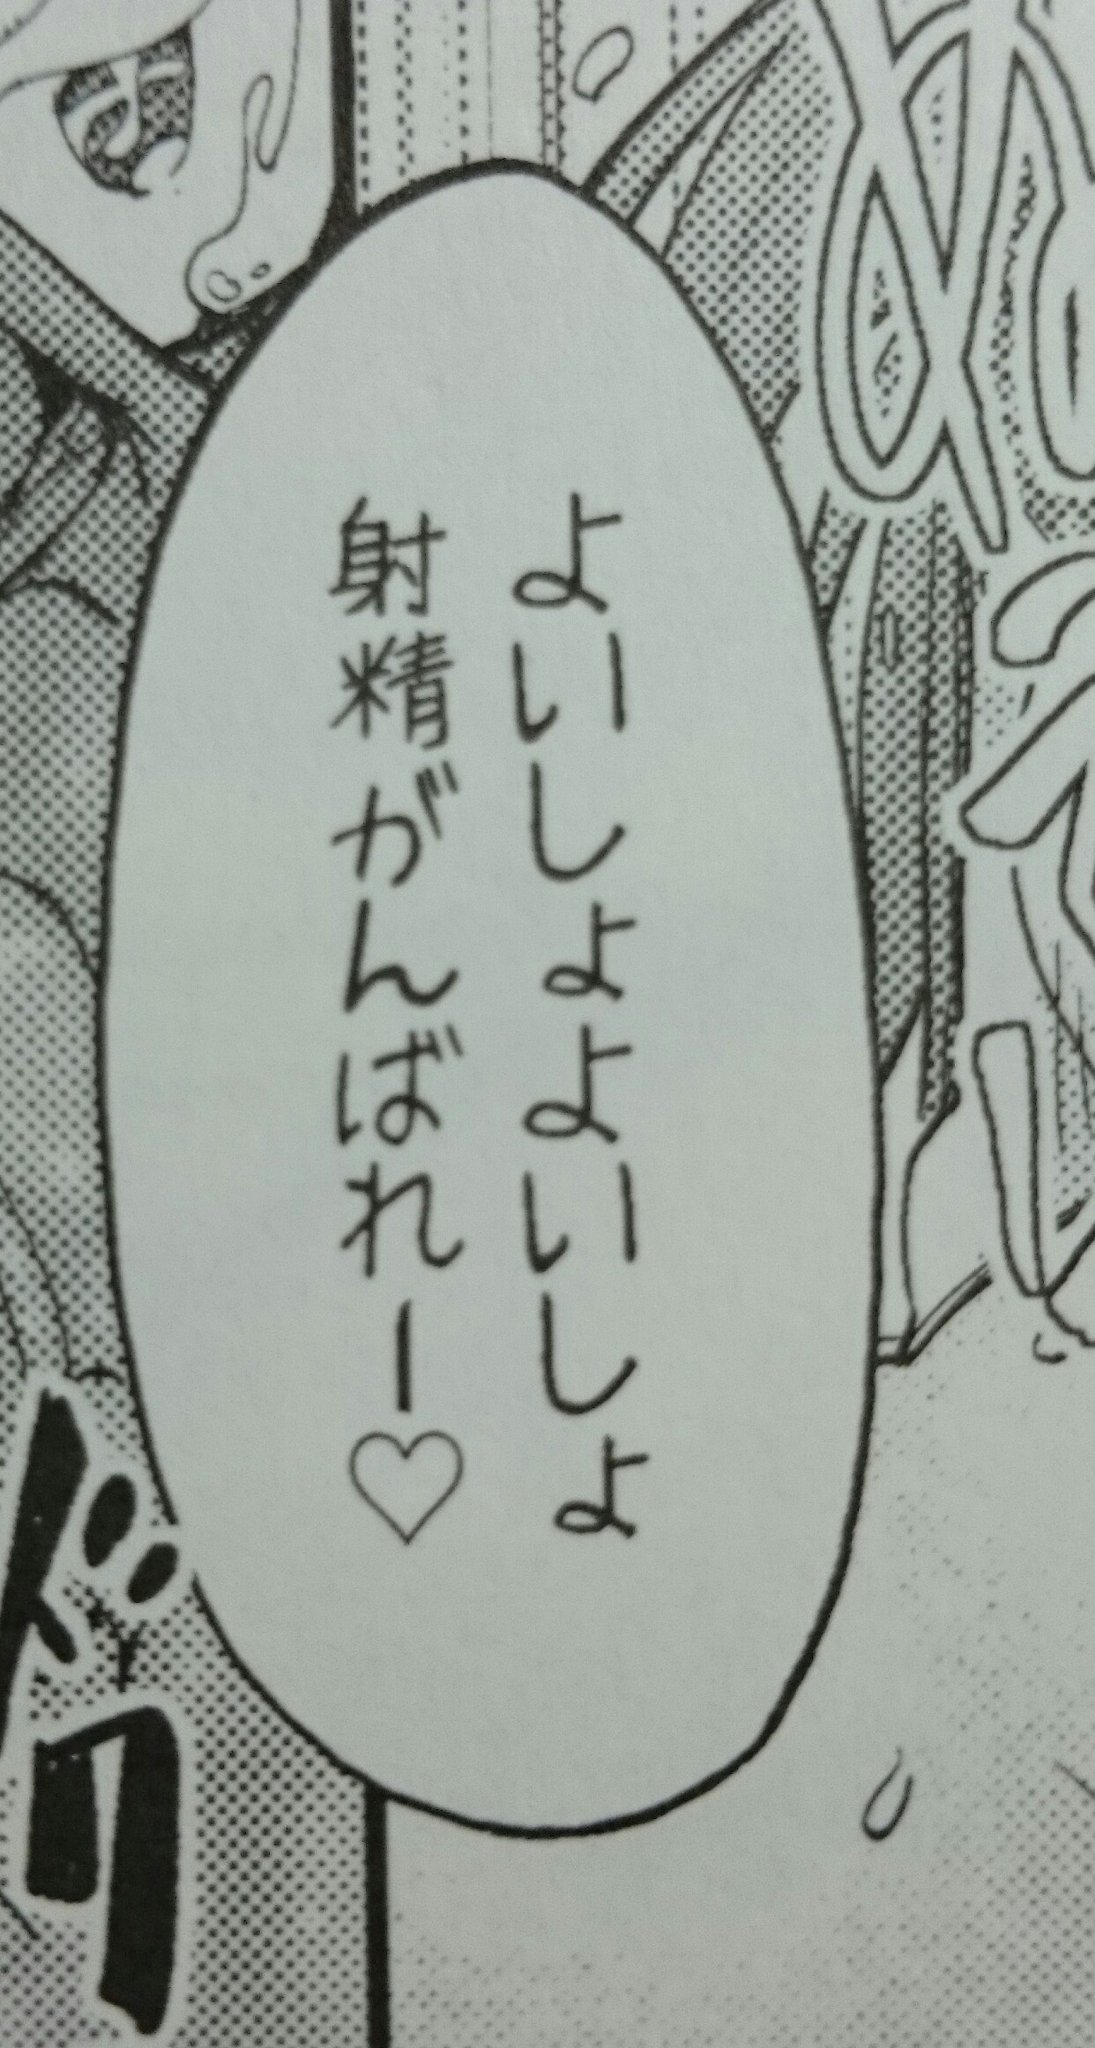 よいしょよいしょ
射精がんばれー♡
ドク